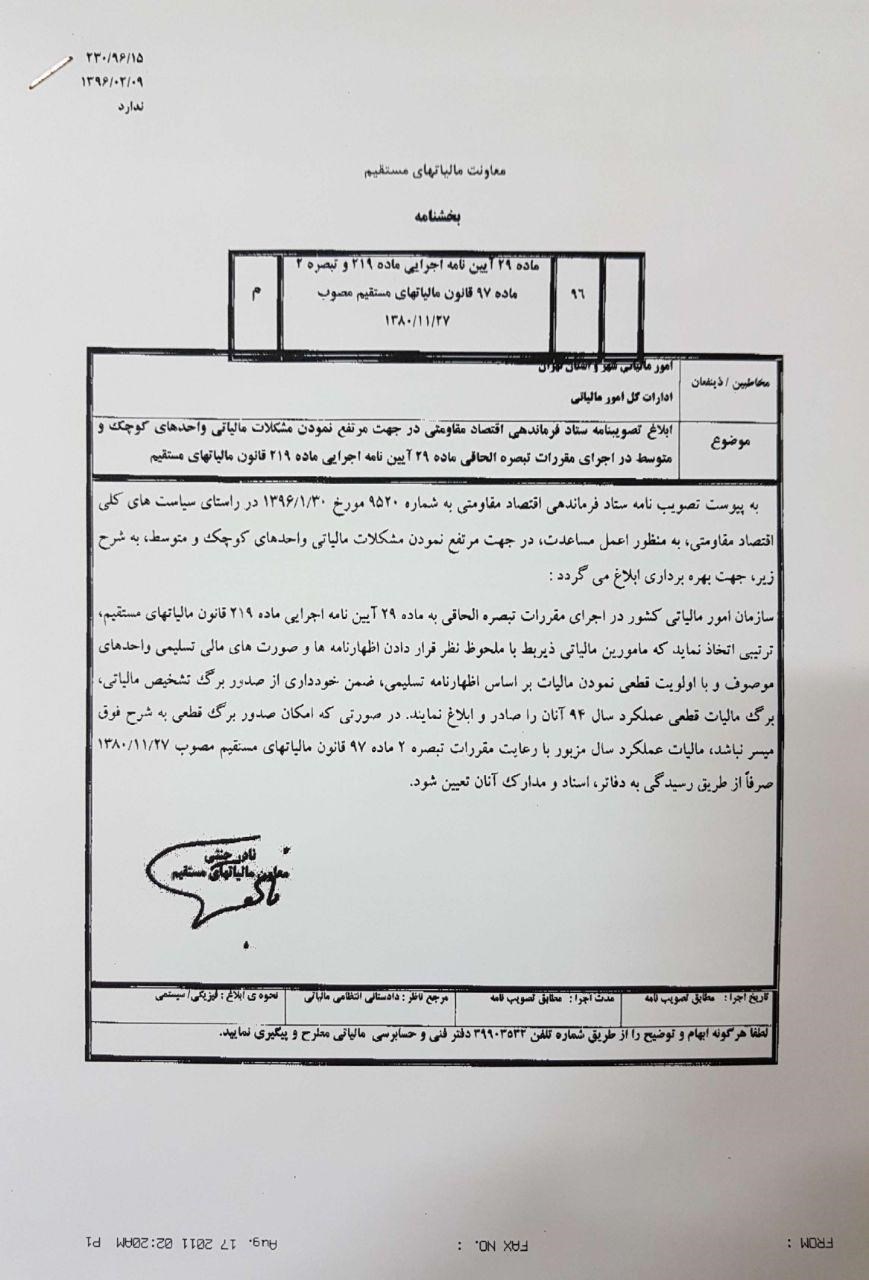 ۲۳۰/۹۶/۱۵
۱۳۹۶/۰۲/۰۹
ندارد
معاونت مالیاتهای مستقیم
بخشنامه
ماده ۲۹ آیین نامه اجرایی ماده ۲۱۹ و تبصره ۲
ماده ۹۷ قانون مالیاتهای مستقیم مصوب
۱۳۸۰/۱۱/۲۷
۹۶
م
مخاطبین / ذینفعان
امور مالیاتی شهر و استان تهران
ادارات کل امور مالیاتی
موضوع
ابلاغ تصویبنامه ستاد فرماندهی اقتصاد مقاومتی در جهت مرتفع نمودن مشکلات مالیاتی واحدهای کوچک و
متوسط در اجرای مقررات تبصره الحاقی ماده ۲۹ آیین نامه اجرایی ماده ۲۱۹ قانون مالیاتهای مستقیم
به پیوست تصویب نامه ستاد فرماندهی اقتصاد مقاومتی به شماره ۹۵۲۰ مورخ ۱۳۹۶/۱/۳۰ در راستای سیاست های کلی
اقتصاد مقاومتی، به منظور اعمل مساعدت، در جهت مرتفع نمودن مشکلات مالیاتی واحدهای کوچک و متوسط، به شرح
زیر، جهت بهره برداری ابلاغ می گردد :
سازمان امور مالیاتی کشور در اجرای مقررات تبصره الحاقی به ماده ۲۹ آیین نامه اجرایی ماده ۲۱۹ قانون مالیاتهای مستقیم،
ترتیبی اتخاذ نماید که مامورین مالیاتی ذیربط با ملحوظ نظر قرار دادن اظهارنامه ها و صورت های مالی تسلیمی واحدهای
موصوف و با اولویت قطعی نمودن مالیات بر اساس اظهارنامه تسلیمی، ضمن خودداری از صدور برگ تشخیص مالیاتی،
برگ مالیات قطعی عملکرد سال ۹۴ آنان را صادر و ابلاغ نمایند. در صورتی که امکان صدور برگ قطعی به شرح فوق
میسر نباشد، مالیات عملکرد سال مزبور با رعایت مقررات تبصره ۲ ماده ۹۷ قانون مالیاتهای مستقیم مصوب ۱۳۸۰/۱۱/۲۷
صرفاً از طریق رسیدگی به دفاتر، اسناد و مدارک آنان تعیین شود.
نادر جنتی
معاون مالیاتهای مستقیم
تاریخ اجرا : مطابق تصویب نامه
مدت اجرا : مطابق تصویب نامه
مرجع ناظر : دادستانی انتظامی مالیاتی
نحوه ی ابلاغ : فیزیکی/ سیستمی
لطفا هرگونه ابهام و توضیح را از طریق شماره تلفن ۳۹۹۰۳۵۳۲ دفتر فنی و حسابرسی مالیاتی مطرح و پیگیری نمایید.
FROM : FAX NO. : Aug. 17 2011 02:20AM P1